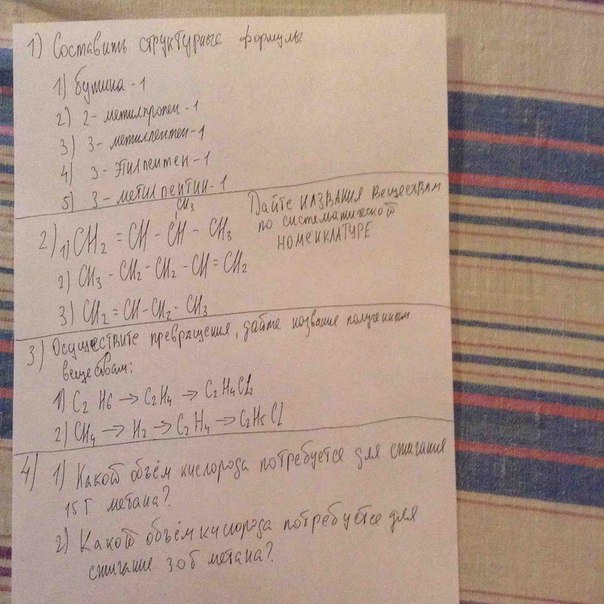 1) Составить структурные формулы
1) бутина-1
2) 2-метилпропен-1
3) 3-метилпентен-1
4) 3-этилпентен-1
5) 3-метилпентин-1
Дайте названия веществам
по систематической
номенклатуре
CH3
2) 1) CH2 = CH - CH - CH3
2) CH3 - CH2 - CH2 - CH = CH2
3) CH2 = CH - CH2 - CH3
3) Осуществите превращения, дайте название полученным
веществам:
1) C2H6 → C2H4 → C2H4Cl2
2) CH4 → H2 → C2H4 → C2H5Cl
4) 1) Какой объём кислорода потребуется для сжигания
15 г метана?
2) Какой объём кислорода потребуется для
сжигание 30б метана?